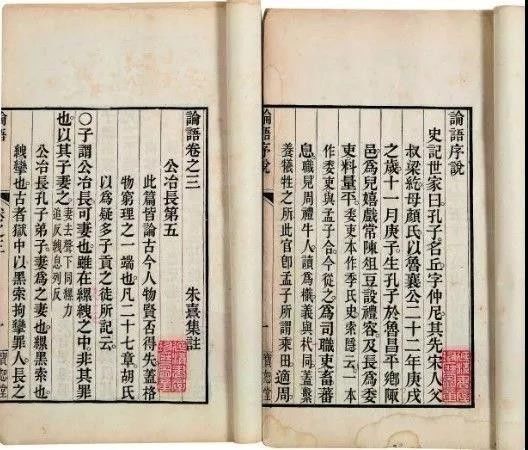 論語序說
史記世家曰孔子名丘字仲尼其先宋人父
叔梁紇母顏氏以魯襄公二十二年庚戌
之歲十一月庚子生孔子於魯昌平鄉陬
邑爲兒嬉戲常陳俎豆設禮容及長爲委
吏料量平委吏本作季氏史索隱云一本
作委吏與孟子合今從之爲司職吏畜蕃
息職見周禮牛人讀爲樴義與杙同蓋繫
養犧牲之所此官卽孟子所謂乘田適周
論語序說
論語卷之三
朱熹集註
公冶長第五
此篇皆論古今人物賢否得失蓋格
物窮理之一端也凡二十七章胡氏
以爲疑多子貢之徒所記云
〇子謂公冶長可妻也雖在縲絏之中非其罪
也以其子妻之妻去聲下同縲力
追反絏息列反
公冶長孔子弟子妻爲之妻也縲黑索也
絏攣也古者獄中以黑索拘攣罪人長之
論語
卷之三